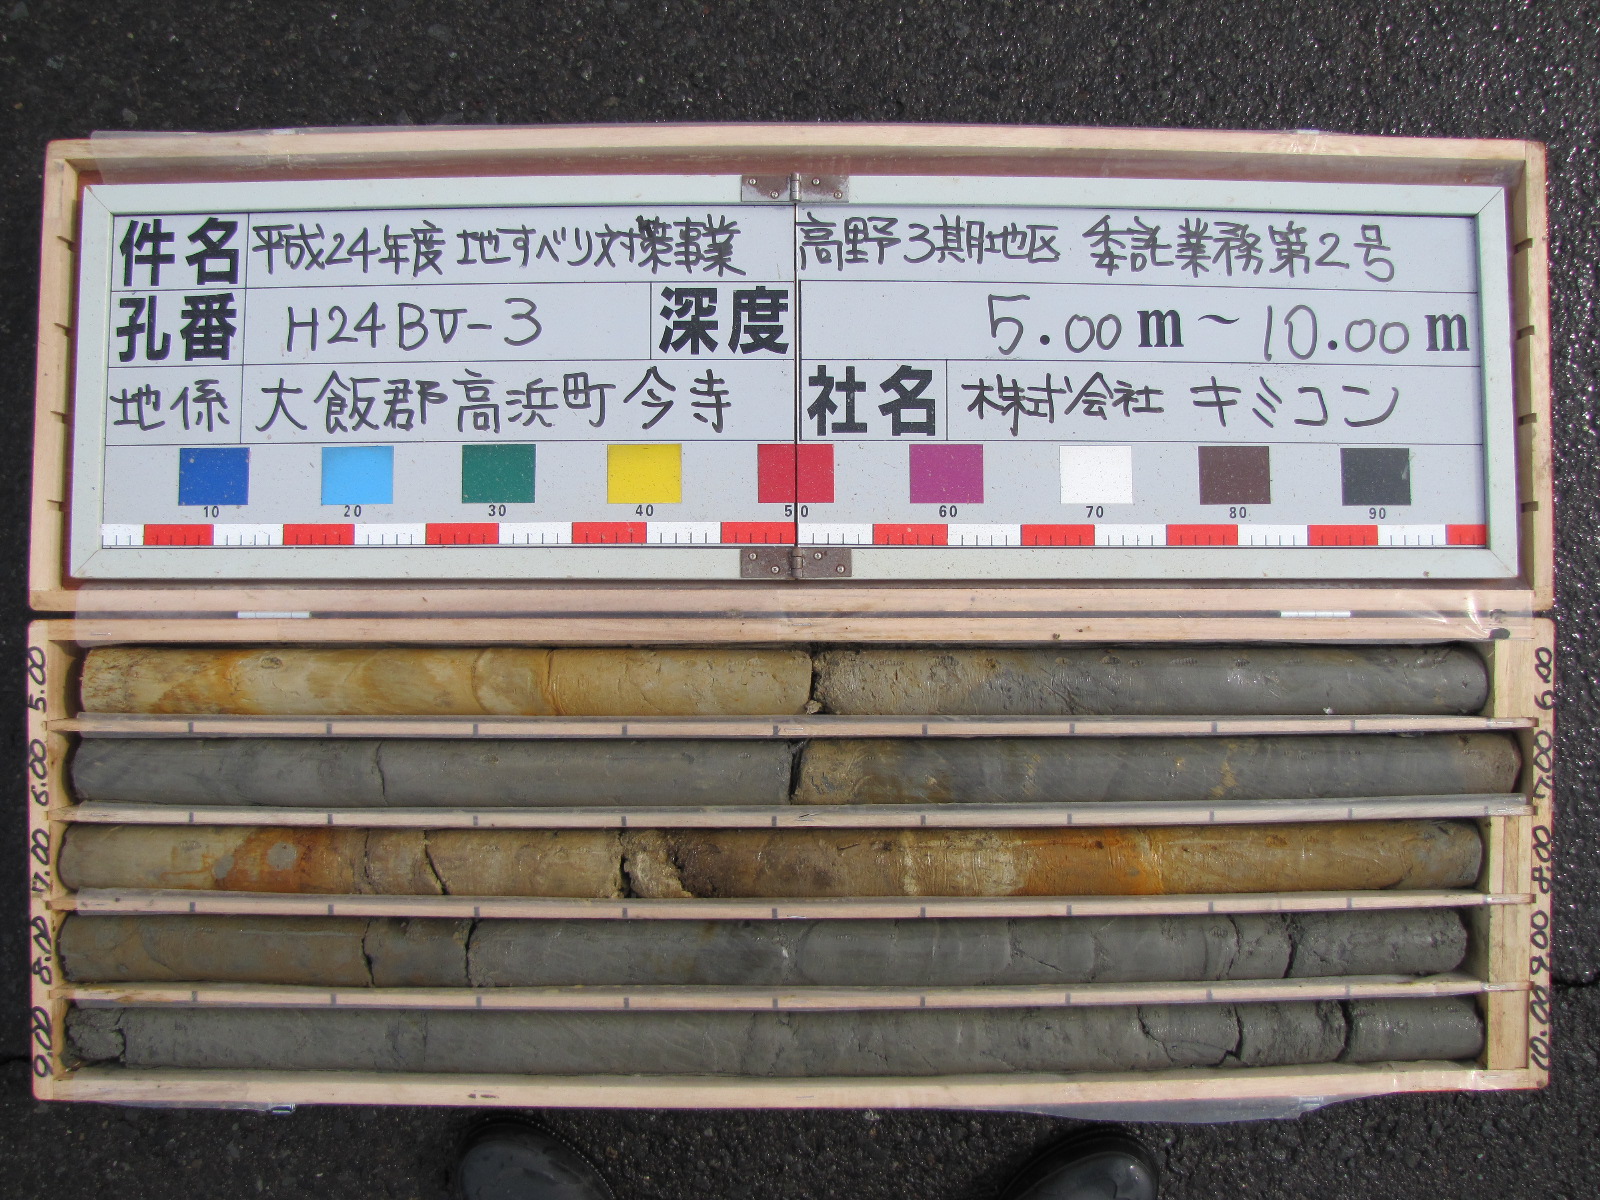 件名 平成24年度 地すべり対策事業 高野3期地区 委託業務第2号
孔番 H24BV-3 深度 5.00m~10.00m
地係 大飯郡高浜町今寺 社名 株式会社 キミコン
10 20 30 40 50 60 70 80 90
5.00 6.00
6.00 7.00
7.00 8.00
8.00 9.00
9.00 10.00